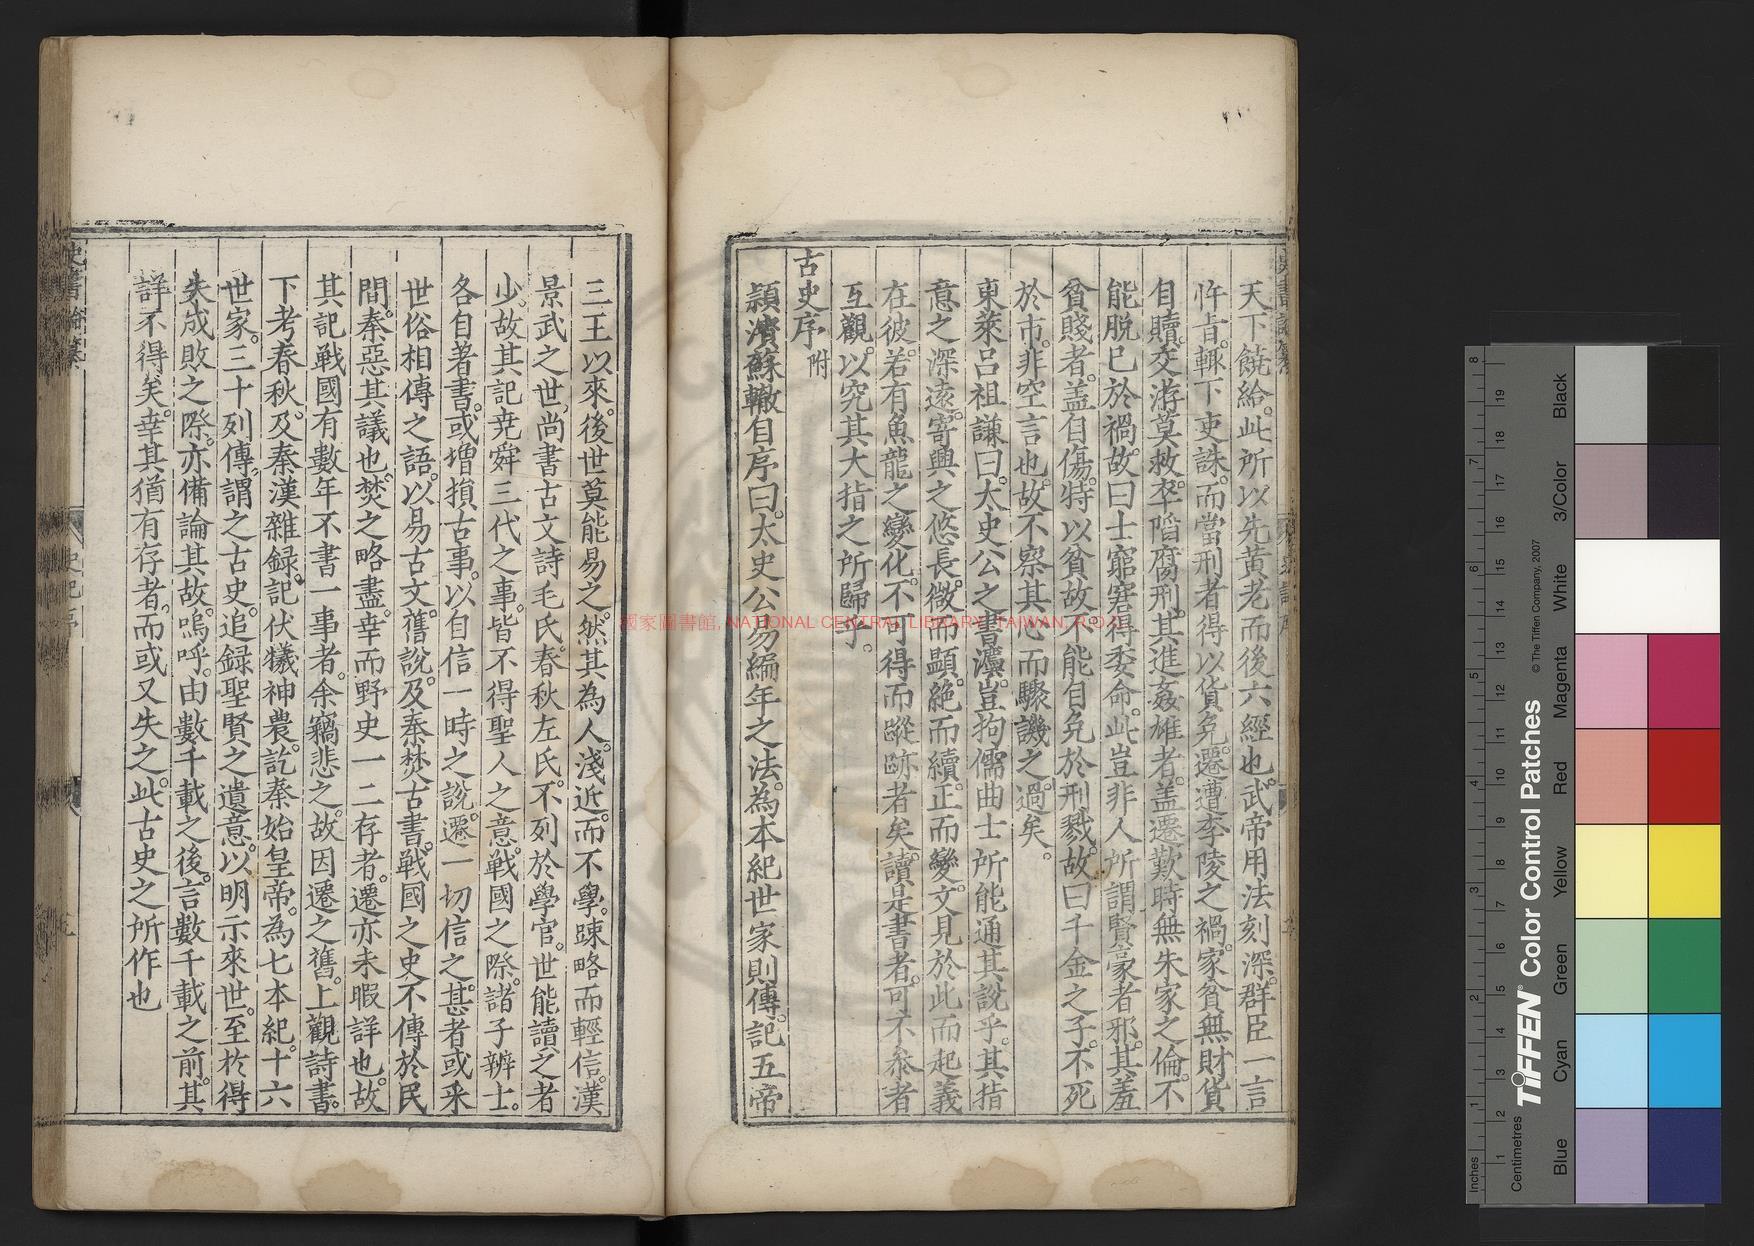 天下饒給。此所以先黃老而後六經也。武帝用法刻深。群臣一言
忤旨。輒下吏誅。而當刑者得以貨免。遷遭李陵之禍。家貧無財貨
自贖。交游莫救。卒陷腐刑。其進姦雄者。蓋遷歎時無朱家之倫。不
能脫已於禍。故曰士窮窘得委命。此豈非人所謂賢豪者邪。其羞
貧賤者。蓋自傷。特以貧故。不能自免於刑戮。故曰千金之子。不死
於市。非空言也。故不察其心而驟譏之。過矣。
東萊呂祖謙曰。太史公之書灋。豈拘儒曲士所能通其說乎。其指
意之深遠。寄興之悠長。微而顯。絕而續。正而變。文見於此而起義
在彼。若有魚龍之變化。不可得而蹤跡者矣。讀是書者。可不叅者
互觀。以究其大指之所歸乎。
古史序 附
潁濱蘇轍自序曰。太史公易編年之法。為本紀世家則傳。記五帝
三王以來。後世莫能易之。然其為人。淺近。而不學。踈略而輕信。漢
景武之世。尚書古文詩毛氏。春秋左氏。不列於學官。世能讀之者
少。故其記堯舜三代之事。皆不得聖人之意。戰國之際。諸子辨士。
各自著書。或增損古事。以自信一時之說。遷一切信之。甚者或采
世俗相傳之語。以易古文舊說。及秦焚古書。戰國之史不傳於民
間。秦惡其議也。焚之略盡。幸而野史一二存者。遷亦未暇詳也。故
其記戰國有數年不書一事者。余竊悲之。故因遷之舊。上觀詩書。
下考春秋。及秦漢雜錄。記伏犧神農。訖秦始皇帝。為七本紀。十六
世家。三十列傳。謂之古史。追錄聖賢之遺意。以明示來世。至於得
失成敗之際。亦備論其故。嗚呼。由數千載之後。言數千載之前。其
詳不得矣。幸其猶有存者。而或又失之。此古史之所作也
史記序
國家圖書館, NATIONAL CENTRAL LIBRARY, TAIWAN, R.O.C
TIFFEN® Color Control Patches
© The Tiffen Company, 2007
Inches
Centimetres
Blue
Cyan
Green
Yellow
Red
Magenta
White
3/Color
Black